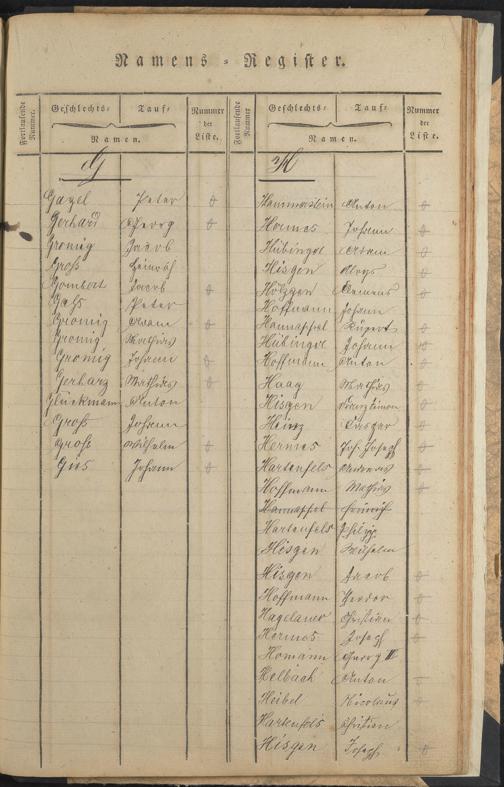 Namens-Register.
Fortlaufende Nummer.
Geschlechts-
Tauf-
Namen.
Nummer der Liste.
Fortlaufende Nummer.
Geschlechts-
Tauf-
Namen.
Nummer der Liste.
G
Gazel Peter
Gerhard Georg
Gronig Jacob
Groß Heinrich
Gombert Jacob
Gahs Peter
Gromig Adam
Gromig Mathias
Gromig Johann
Gerharz Mathias
Glückmann Anton
Groß Johann
Groß Wilhelm
Güs Johann
H
Hammerstein Anton
Hermes Johann
Hübinger Adam
Hisgen Aloys
Hötzgen Clemens
Hoffmann Johann
Hannappel
Hübinger Johann
Hoffmann Anton
Haag Mathias
Hisgen Franz Simon
Heinz Caspar
Hermes Joh. Joseph
Hartenfels Andreas
Hoffmann Mathias
Hannappel Heinrich
Hartenfels Philipp
Hisgen Wilhelm
Hisgen Jacob
Hoffmann
Hagelauer Christian
Hermes Joseph
Homann Georg III
Helbach Anton
Heibel Nicolaus
Hartenfels Christian
Hisgen Joseph